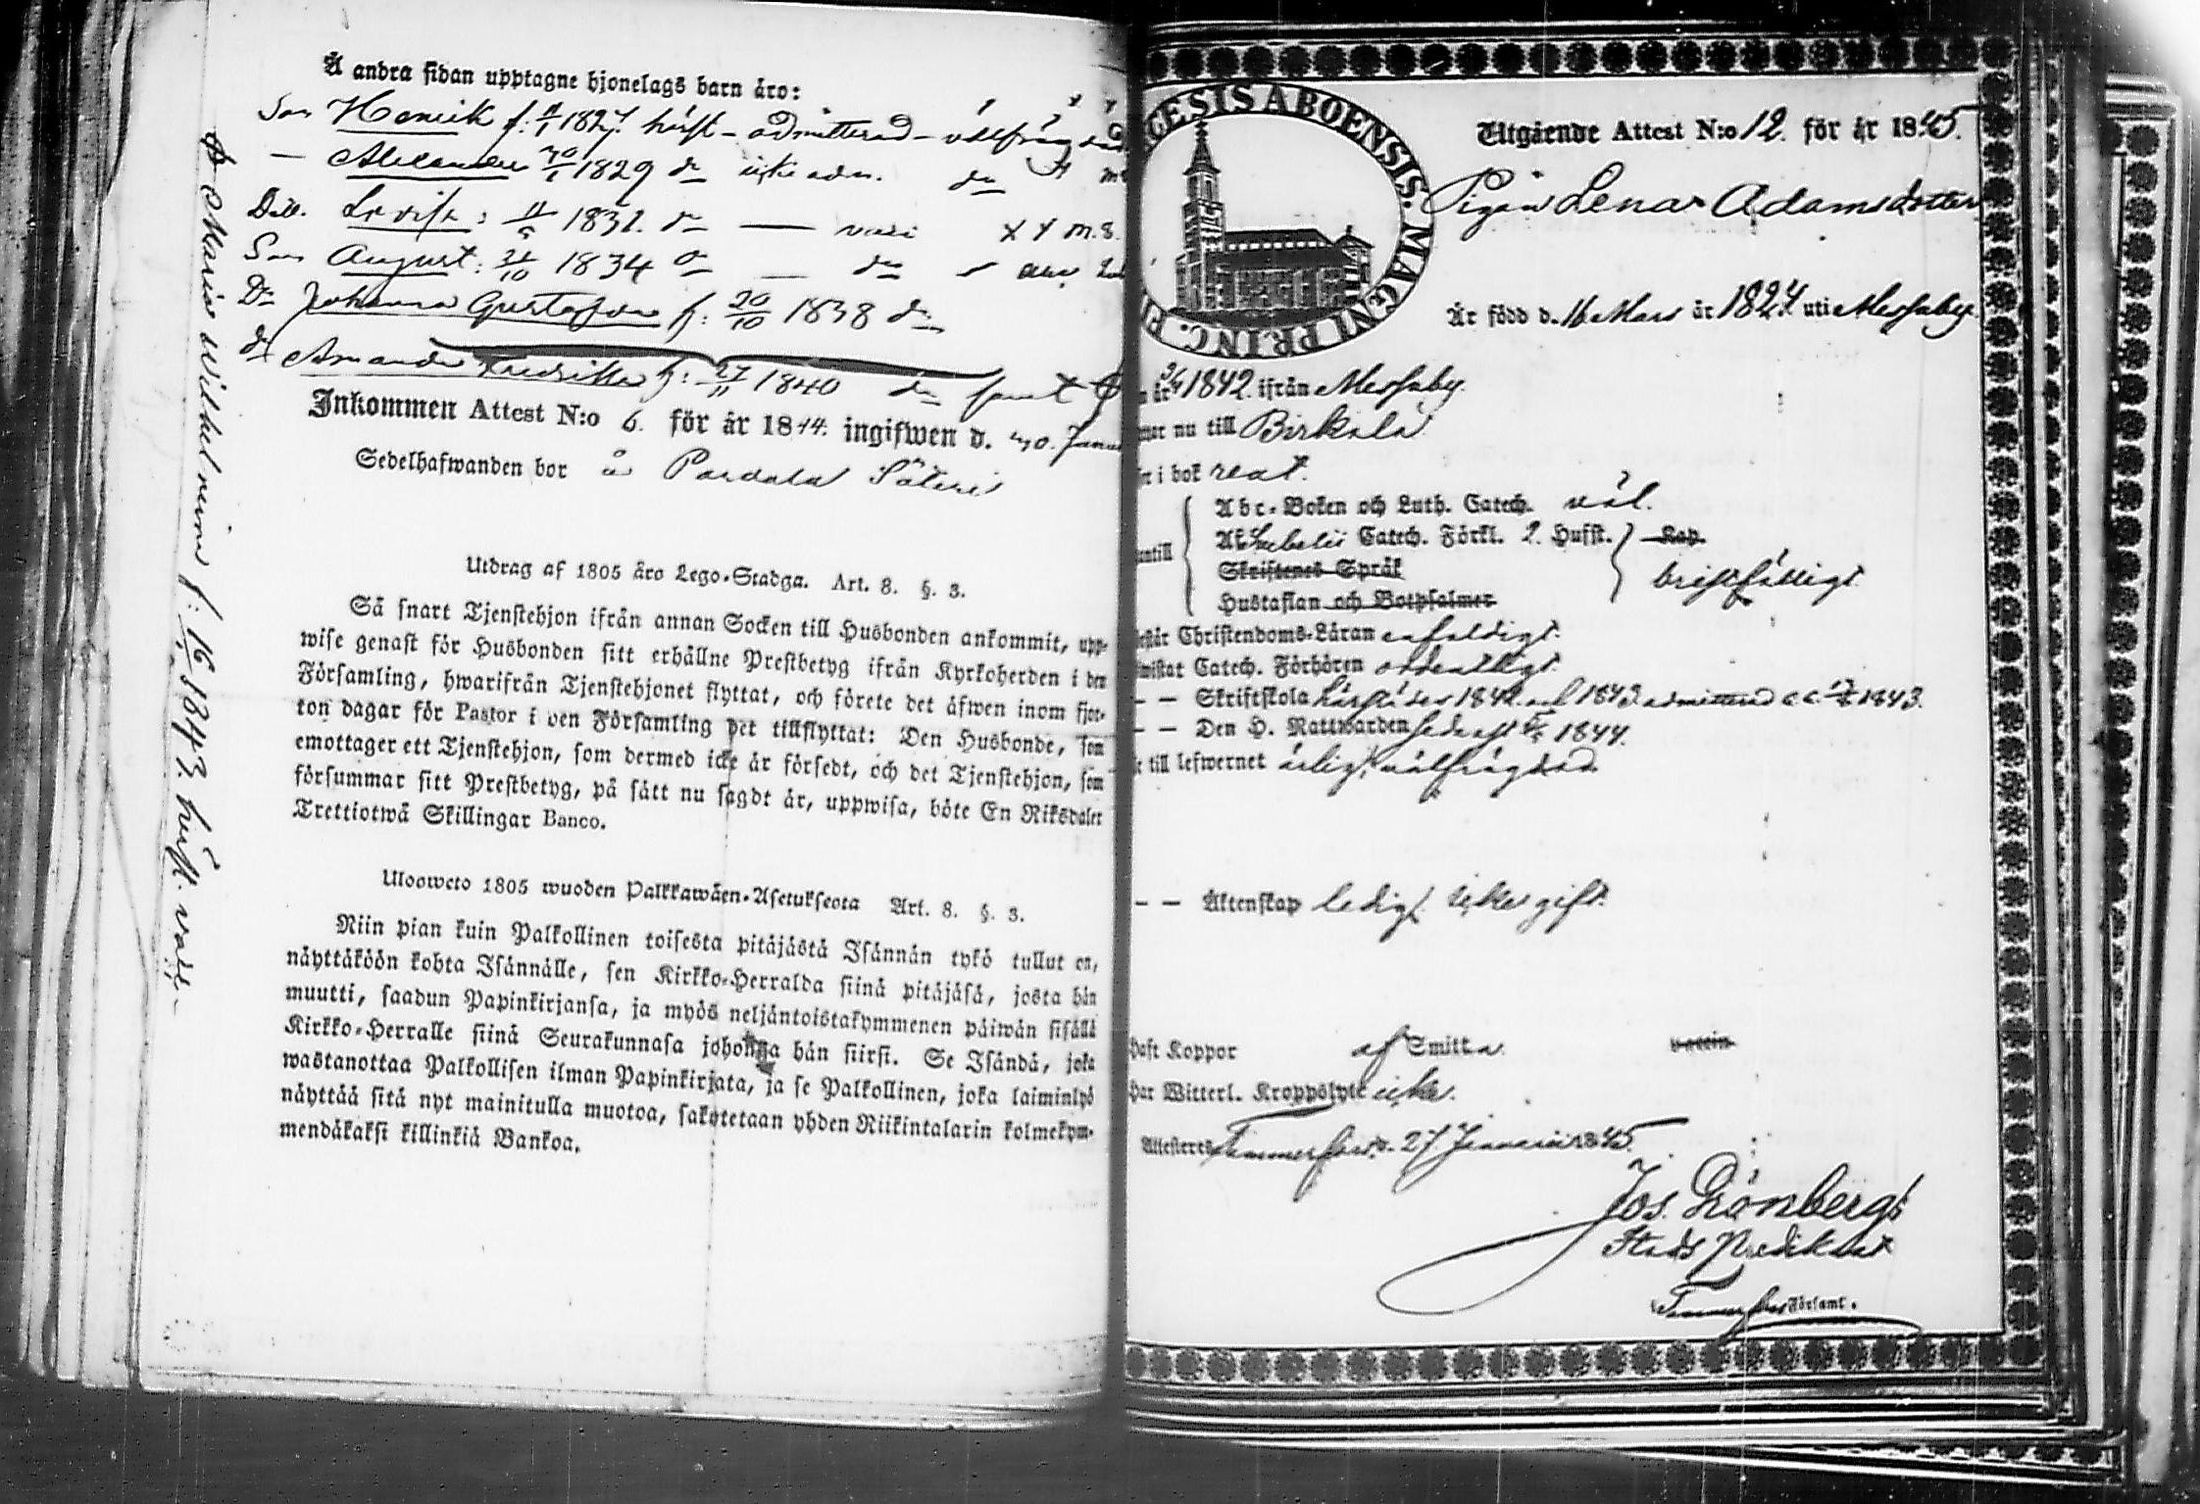 Å andra sidan upptagne hjonelags barn äro:
Son Henrik f: 1827. härst. admitterad
Alexander 1829 icke adm.
Dott. Lovisa: 1832.
Son August: 1834
Dr Johanna Gustafva f: 20/10 1838
Amanda Fredrika f: 27/11 1840
Maria Wilhelmina f: 16 1843.
Inkommen Attest N:o 6. för år 1844. ingifwen d.
Sedelhafwanden bor å Pardala Säteri
Utdrag af 1805 åro Lego-Stadga. Art. 8. §. 3.
Så snart Tjenstehjon ifrån annan Socken till Husbonden ankommit, upp-
wise genast för Husbonden sitt erhållne Prestbetyg ifrån Kyrkoherden i den
Församling, hwarifrån Tjenstehjonet flyttat, och förete det äfwen inom fjor-
ton dagar för Pastor i den Församling det tillflyttat: Den Husbonde, som
emottager ett Tjenstehjon, som dermed icke är försedt, och det Tjenstehjon, som
försummar sitt Prestbetyg, på sätt nu sagdt är, uppwisa, böte En Riksdaler
Trettiotwå Skillingar Banco.
Ulosweto 1805 wuoden Palkkawäen-Asetuksesta Art. 8. §. 3.
Niin pian kuin Palkollinen toisesta pitäjästä Isännän tykö tullut on,
näyttäköön kohta Isännälle, sen Kirkko-Herralda siinä pitäjäsä, josta hän
muutti, saadun Papinkirjansa, ja myös neljäntoistakymmenen päiwän sisällä
Kirkko-Herralle siinä Seurakunnasa johonga hän siirsi. Se Isändä, joka
wastanottaa Palkollisen ilman Papinkirjata, ja se Palkollinen, joka laiminlyö
näyttää sitä nyt mainitulla muotoa, sakotetaan yhden Riikintalarin kolmekym-
mendäkaksi killinkiä Bankoa.
CESIS ABOENSIS. MAGNI PRINC. FI
Utgående Attest N:o 12. för år 1845.
Pigan Lena Adamsdotter
Är född d. 16 Mars år 1827 uti Messuby
1842. ifrån Messuby.
nu till Birkala
i bok reat.
Abc-Boken och Luth. Catech. väl.
Af Svebelii Catech. Förkl. 2. Hufst. Kap.
Skriftenes Språk
bristfälligt
Hustaflan och Botpsalmer
Christendoms-Läran enfaldigt.
Catech. Förhören ordentligt.
— — Skriftskola härstädes 1842 och 1843 admitterad 1843.
— — Den H. Nattwarden sednast 1844.
till lefwernet ärlig, välfrägdad.
— — Äktenskap ledig. icke gift.
haft Koppor af Smitta. vaccin
har Witterl. Kroppslyte icke.
Attesteres Tammerfors d. 27 Januarii 1845.
Jos. Grönberg
Stads Predikant
Tammerfors Församl.